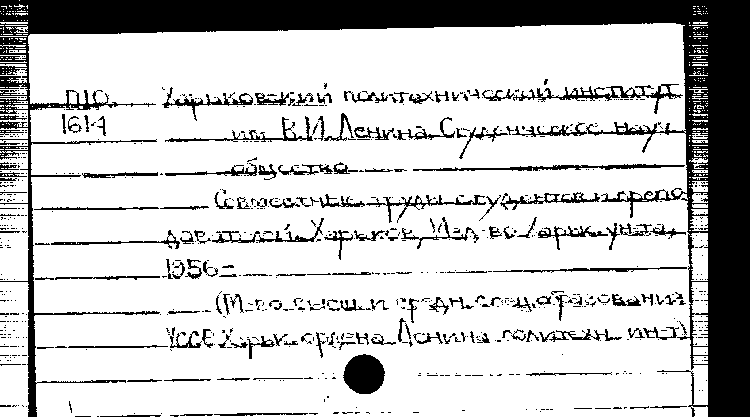 П10 Харьковский политехнический институт
1614 им В.И. Ленина. Студенческое науч
общество
Совместные труды студентов и препо
давателей. Харьков, Изд-во Харьк. ун-та,
1956-
(М-во высш и средн. спец. образования
УССР. Харьк. ордена Ленина политехн. ин-т)